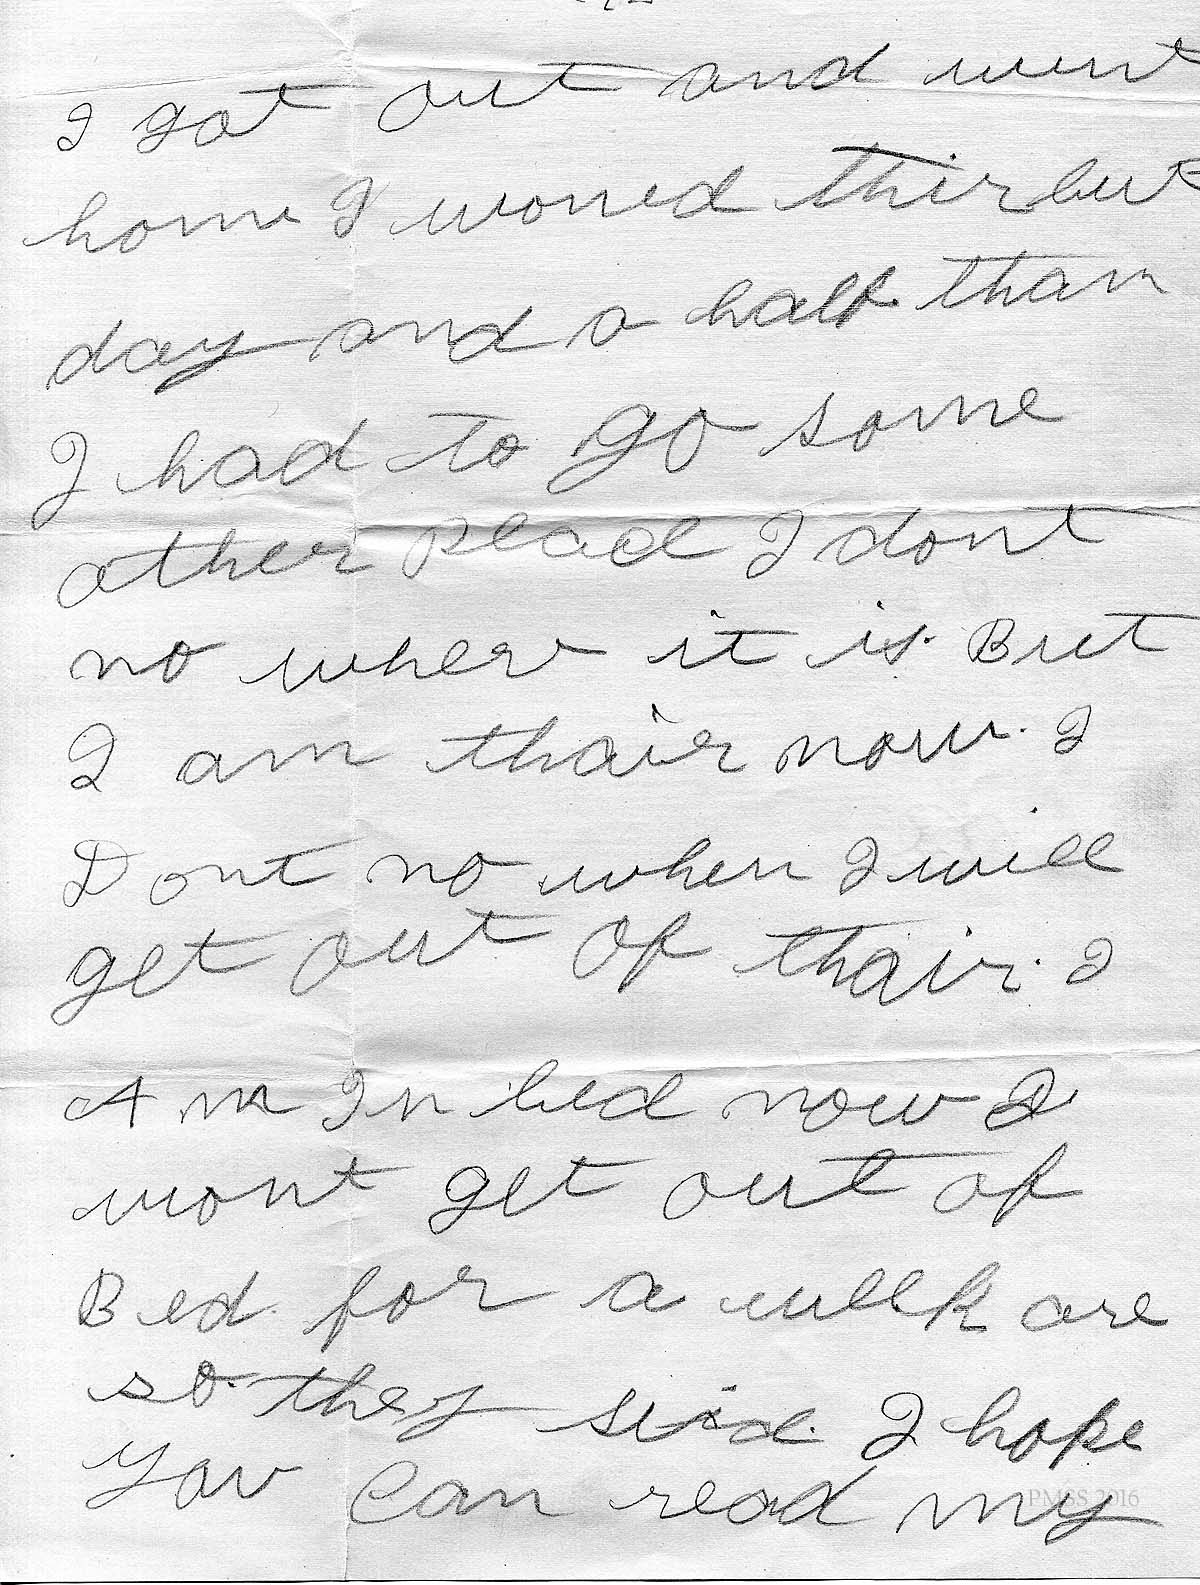 I got out and went
home I woned thir but
day and a half than
I had to go some
other plad I dont
no wher it is. But
I am thair now. I
Dont no when I will
get out of thair. I
Am In bed now I
wont get out of
Bed for a week are
so. they seid. I hope
you can read my
PMSS 2016